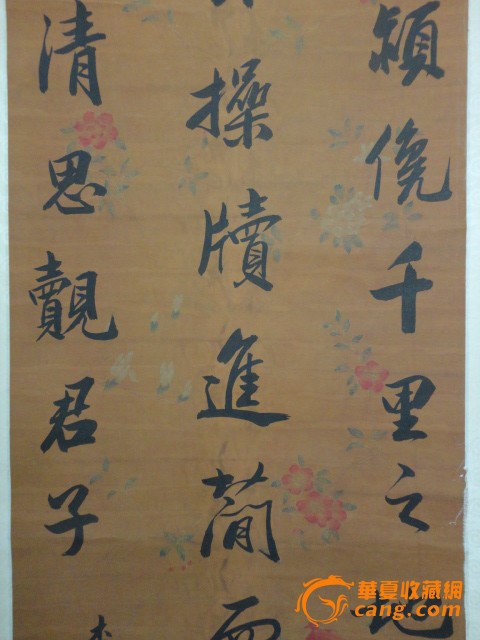 俛千里之地
操牘進簡而
清思覿君子
華夏收藏網
cang.com